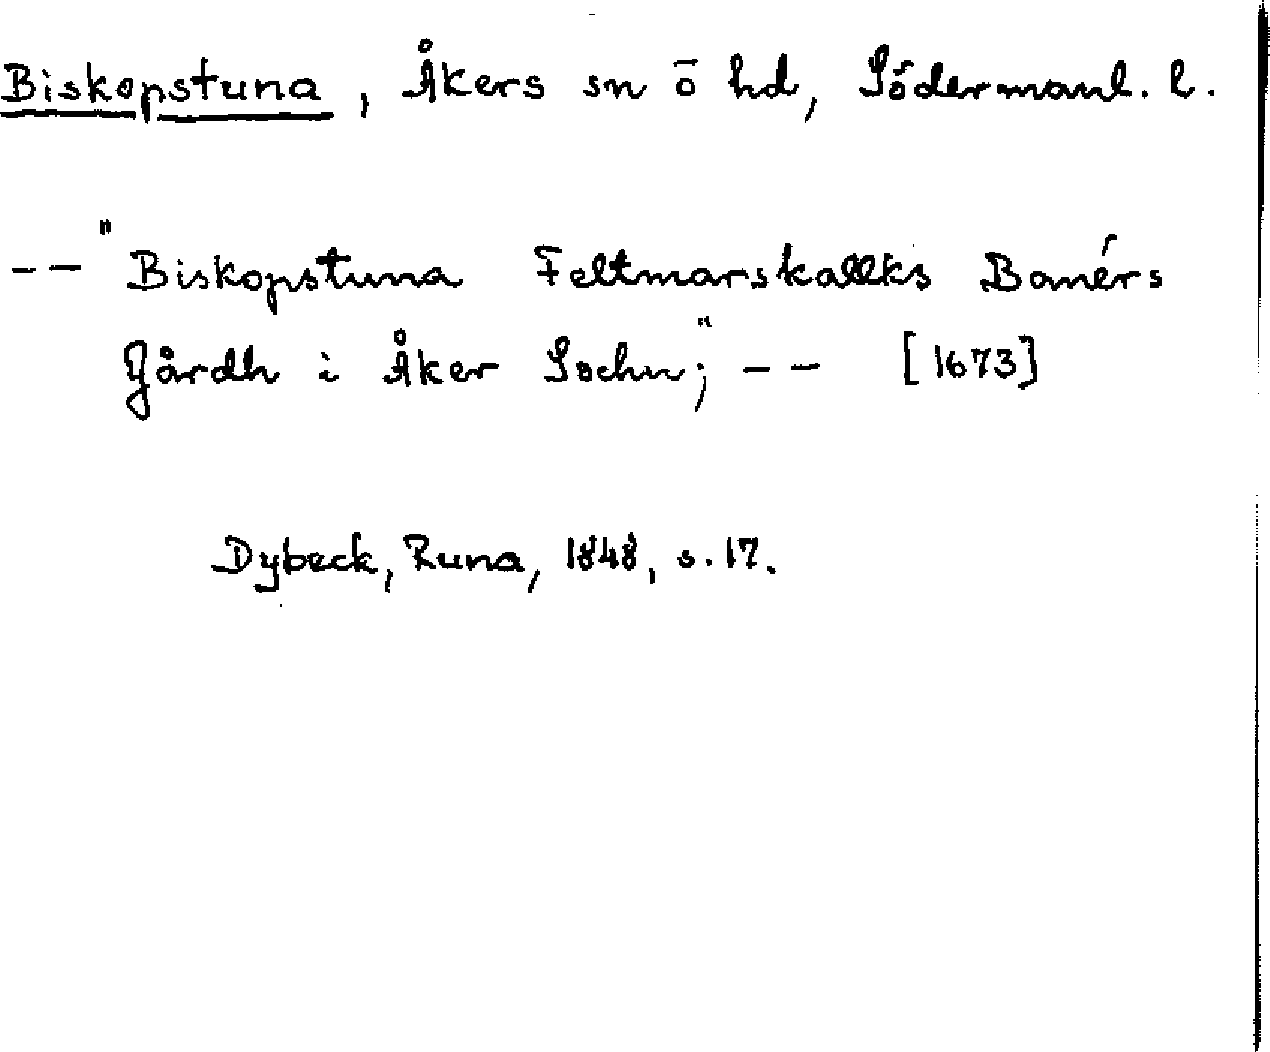 Biskopstuna, Åkers sn ō hd, Södermanl. l.
-- "Biskopstuna Feltmarskallks Banérs
Gårdh i Åker Sochn;" -- [1673]
Dybeck, Runa, 1848, s. 17.